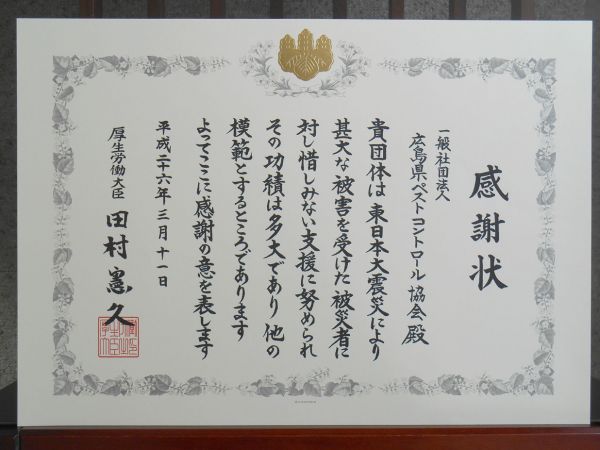 感謝状
一般社団法人
広島県ペストコントロール協会 殿
貴団体は東日本大震災により
甚大な被害を受けた被災者に
対し惜しみない支援に努められ
その功績は多大であり他の
模範とするところであります
よってここに感謝の意を表します
平成二十六年三月十一日
厚生労働大臣 田村憲久